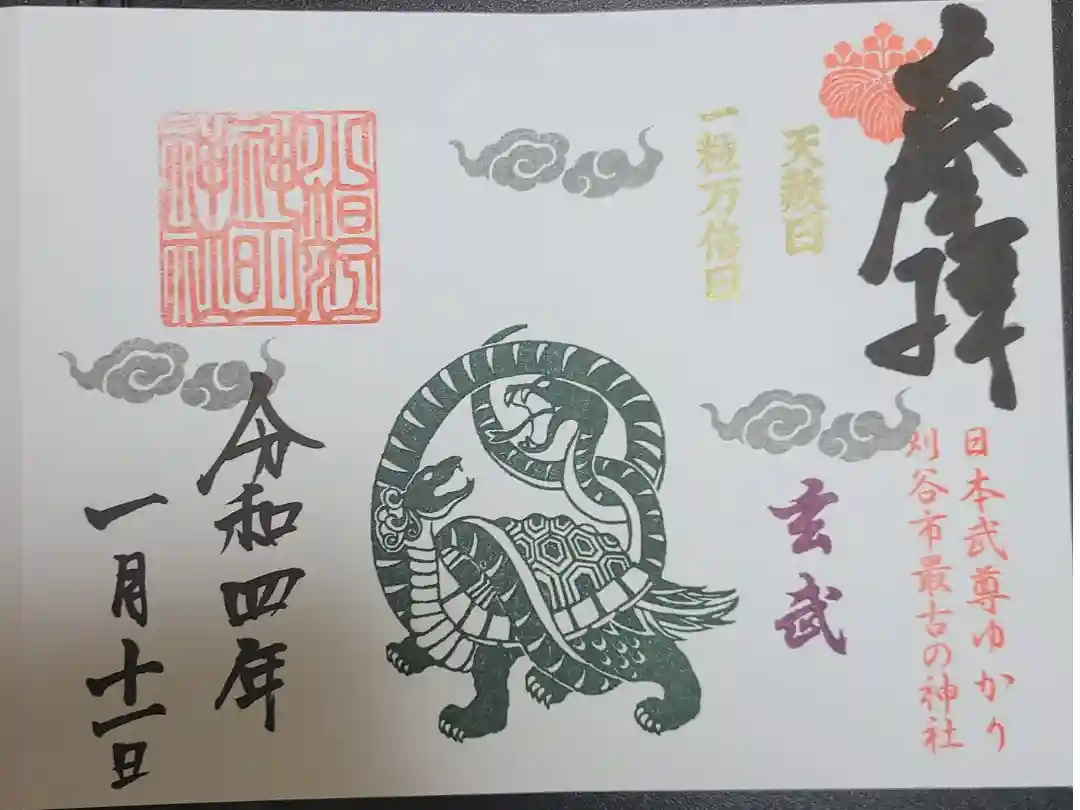 奉拝
日本武尊ゆかり
刈谷市最古の神社
天赦日
一粒万倍日
玄武
小垣江
神明
神社
令和四年
一月十一日